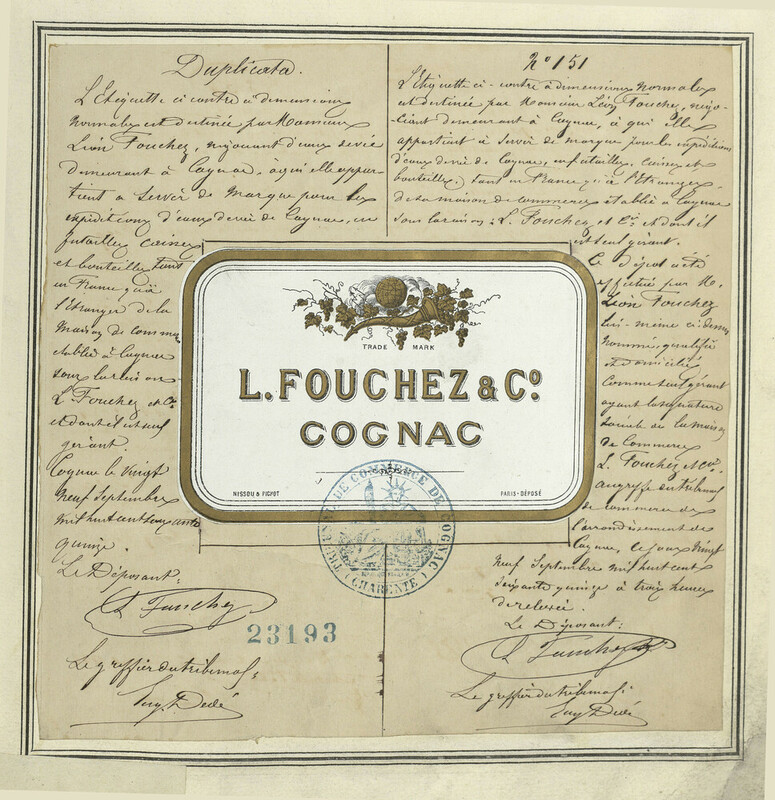 Duplicata.
L'Etiquette ci contre à dimensions
normales est destinée par Monsieur
Léon Fouchez, négociant d'eaux de vie
demeurant à Cognac, à qui elle appar-
tient à servir de Marque pour les
expéditions d'eaux de vie de Cognac, en
futailles caisses
et bouteilles tant
en France qu'à
l'étranger de la
Maison de commerce
établie à Cognac
sous la raison
L. Fouchez et Cie
et dont il est seul
gérant.
Cognac le vingt
neuf Septembre
mil huit cent soixante
quinze.
Le Déposant:
L. Fouchez
23193
Le greffier du tribunal:
Eug. Dedé
No 151
L'Etiquette ci-contre à dimensions normales
est destinée par Monsieur Léon Fouchez, négo-
ciant demeurant à Cognac, à qui elle
appartient à servir de marque pour les expéditions
d'eaux de vie de Cognac, en futailles, caisses et
bouteilles, tant en France qu'à l'étranger,
de la maison de commerce établie à Cognac
sous la raison: L. Fouchez et Cie et dont il
est seul gérant.
Ce dépôt a été
effectué par M.
Léon Fouchez
lui-même ci-dessus
nommé, qualifié
et domicilié
Comme seul gérant
ayant la signature
sociale de la maison
de Commerce
L. Fouchez et Cie
au greffe du tribunal
de commerce de
l'arrondissement de
Cognac, ce jour vingt
neuf Septembre mil huit cent
soixante quinze à trois heures
de relevée.
Le Déposant:
L. Fouchez
Le greffier du tribunal:
Eug. Dedé
TRADE MARK
L. FOUCHEZ & Co.
COGNAC
NISSOU & PICHOT
PARIS-DÉPOSÉ
TRIBUNAL DE COMMERCE DE COGNAC
(CHARENTE)